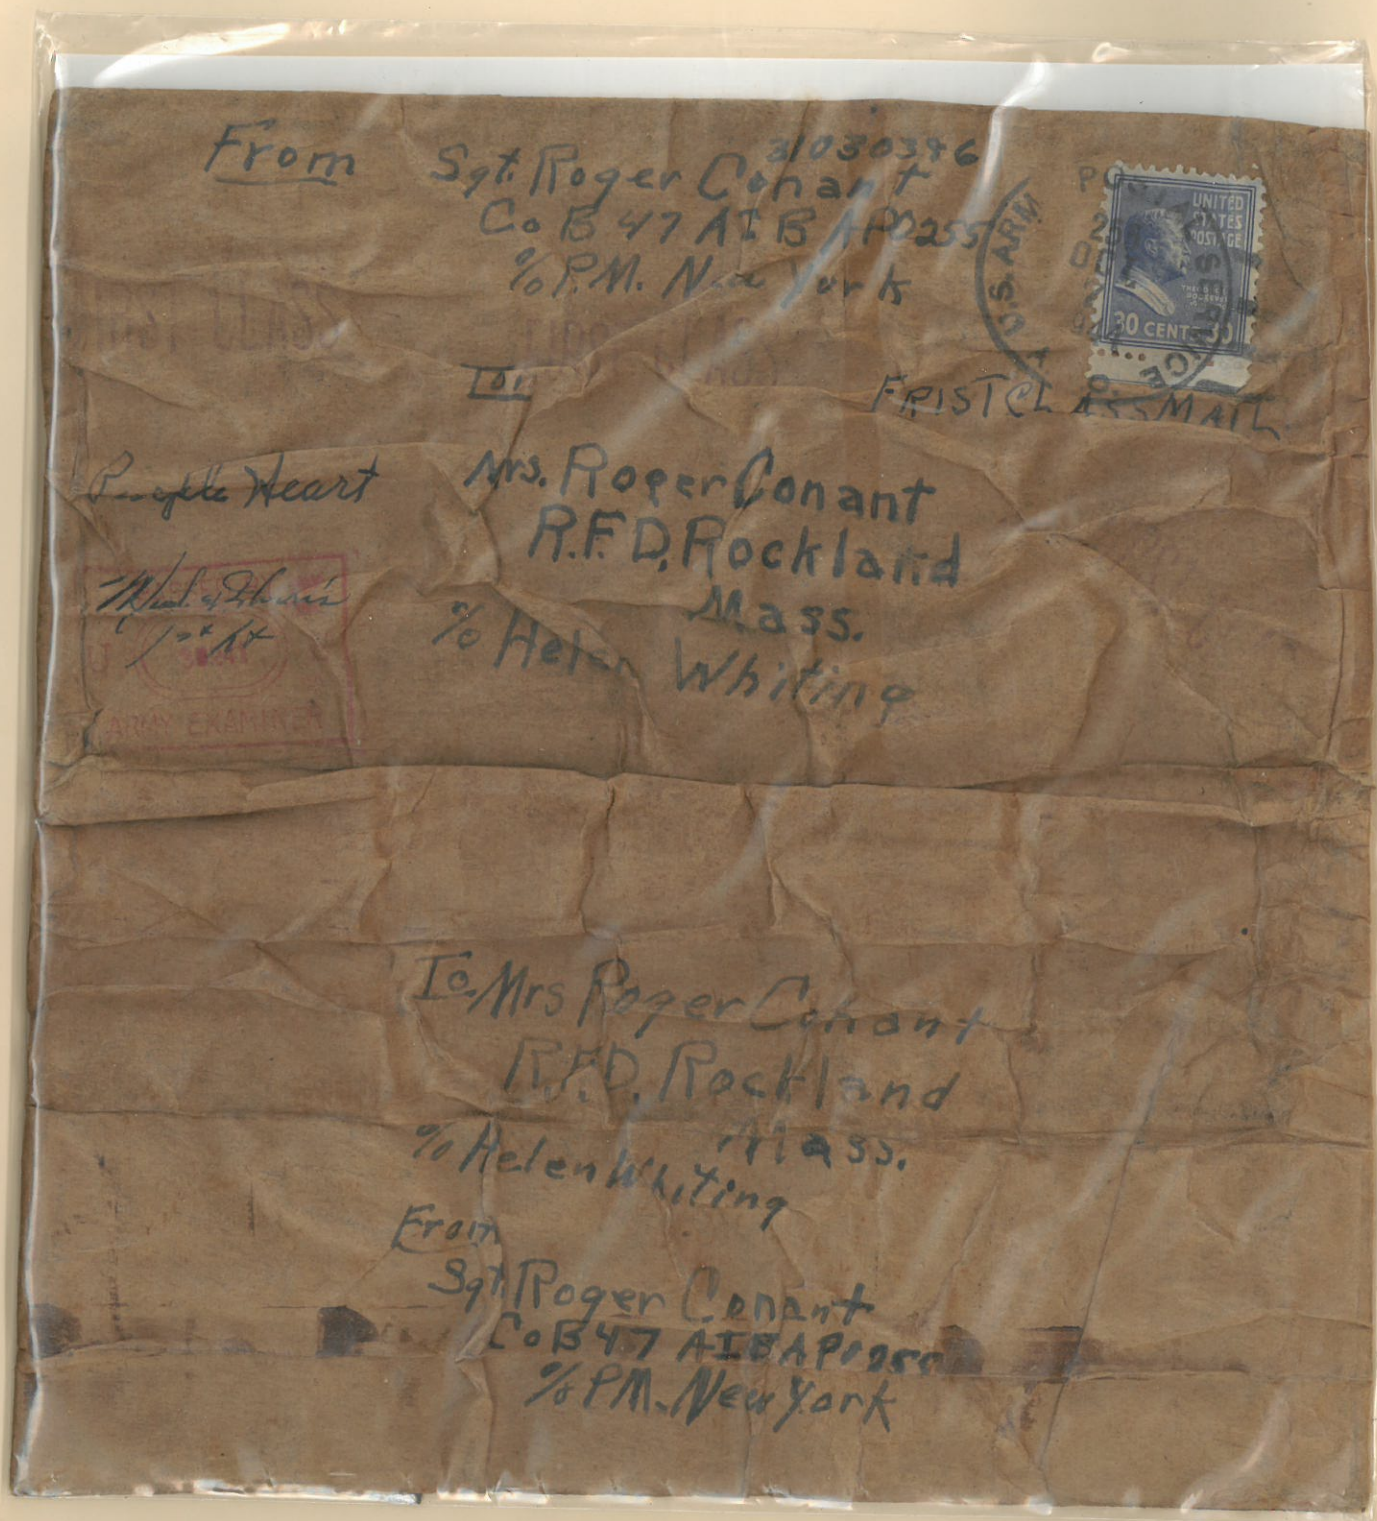 From
31030346
Sgt. Roger Conant
Co B 47 AIB APO 255
% P.M. New York
U.S. ARMY
UNITED
STATES
POSTAGE
30 CENTS 30
To.
FRISTCLASSMAIL
Purple Heart
Mrs. Roger Conant
R.F.D. Rockland
Mass.
% Helen Whiting
1st Lt
ARMY EXAMINER
To. Mrs Roger Conant
R.F.D. Rockland
Mass.
% Helen Whiting
From
Sgt Roger Conant
Co B 47 AIB APO 255
% PM. New York